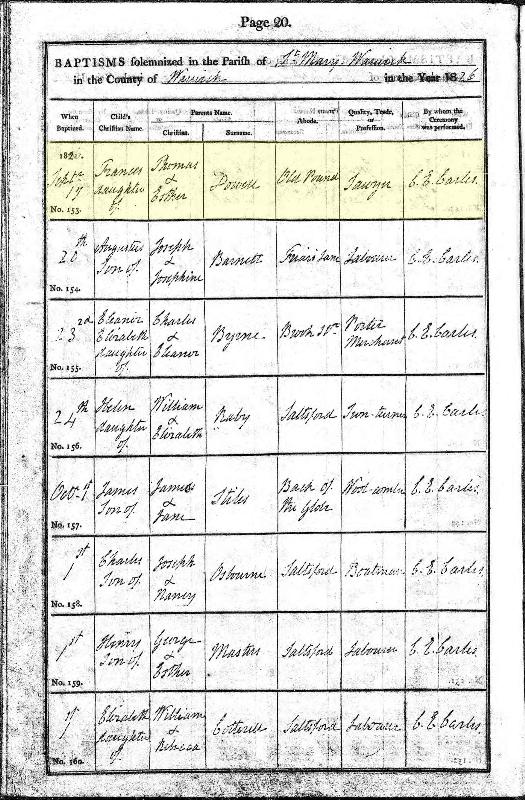 Page 20.
BAPTISMS solemnized in the Parish of St. Mary Warwick
in the County of Warwick in the Year 1826
When Baptized. Child's Christian Name. Parents Name. Christian. Surname. Abode. Quality, Trade, or Profession. By whom the Ceremony was performed.
182
Septr 17 Frances daughter of Thomas & Esther Powell Old Pound Sawyer C. E. Carles.
No. 153.
20th Augustus Son of Joseph & Josephine Barnett Friars Lane Labourer C. E. Carles.
No. 154.
23rd Eleanor Elizabeth daughter of Charles & Eleanor Byrne Brook Str. Porter Merchant C. E. Carles.
No. 155.
24th Helen daughter of William & Elizabeth Raby Saltsford C. E. Carles.
No. 156.
Octr 1st James Son of James & Jane Stiles Back of the Globe Wool-comber C. E. Carles.
No. 157.
1st Charles Son of Joseph & Nancy Osbourne Saltsford Boatman C. E. Carles.
No. 158.
1st Henry Son of George & Esther Masters Saltsford Labourer C. E. Carles
No. 159.
1st Elizabeth daughter of William & Rebecca Cotterell Saltsford Labourer C. E. Carles.
No. 160.